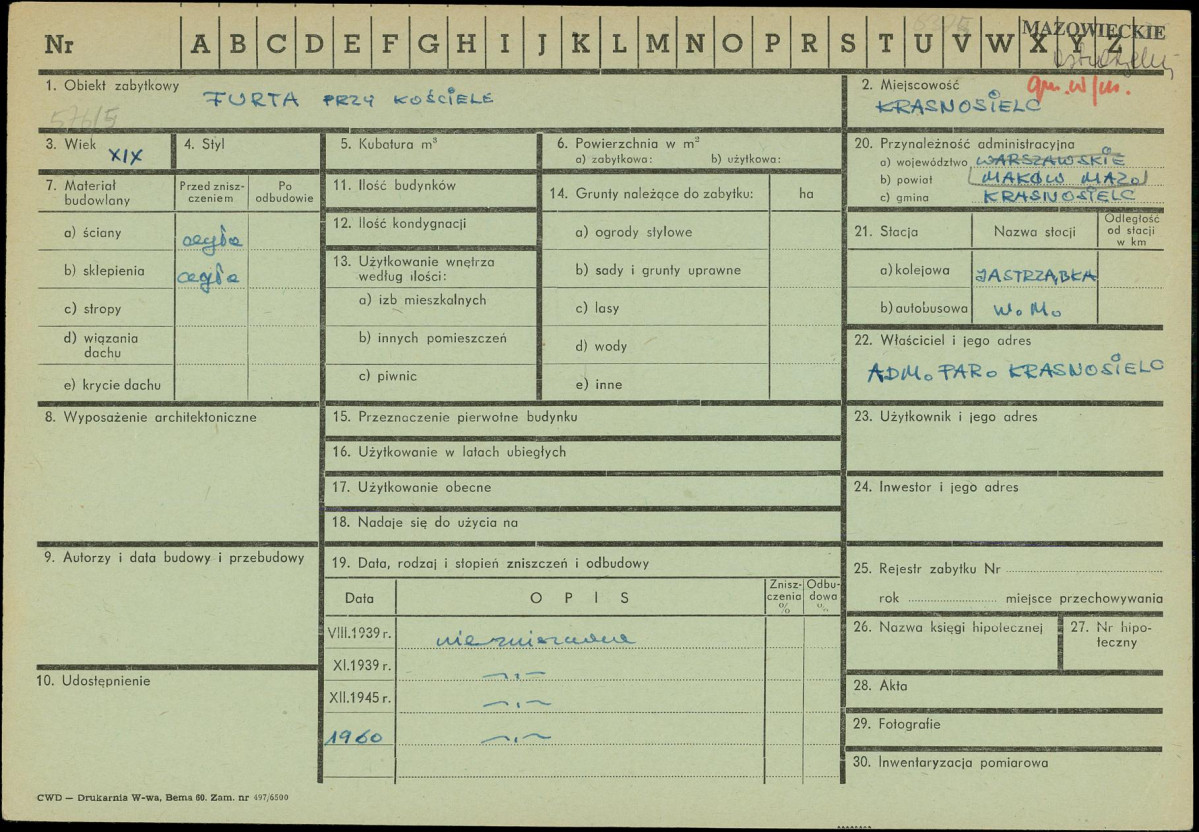 Nr A B C D E F G H I J K L M N O P R S T U V W X Y Z
MAZOWIECKIE
1. Obiekt zabytkowy FURTA PRZY KOŚCIELE
576/5
2. Miejscowość gm. w/m.
KRASNOSIELC
3. Wiek XIX
4. Styl
5. Kubatura m³
6. Powierzchnia w m²
a) zabytkowa: b) użytkowa:
20. Przynależność administracyjna
a) województwo WARSZAWSKIE
b) powiat MAKÓW MAZO
c) gmina KRASNOSIELC
7. Materiał budowlany
Przed zniszczeniem
Po odbudowie
a) ściany cegła
b) sklepienia cegła
c) stropy
d) wiązania dachu
e) krycie dachu
11. Ilość budynków
12. Ilość kondygnacji
13. Użytkowanie wnętrza
według ilości:
a) izb mieszkalnych
b) innych pomieszczeń
c) piwnic
14. Grunty należące do zabytku: ha
a) ogrody stylowe
b) sady i grunty uprawne
c) lasy
d) wody
e) inne
21. Stacja
Nazwa stacji
Odległość
od stacji
w km
a) kolejowa JASTRZĄBKA
b) autobusowa W. M.
22. Właściciel i jego adres
ADM. PAR. KRASNOSIELC
8. Wyposażenie architektoniczne
15. Przeznaczenie pierwotne budynku
16. Użytkowanie w latach ubiegłych
17. Użytkowanie obecne
18. Nadaje się do użycia na
23. Użytkownik i jego adres
24. Inwestor i jego adres
9. Autorzy i data budowy i przebudowy
10. Udostępnienie
19. Data, rodzaj i stopień zniszczeń i odbudowy
Data OPIS
Zniszczenia %
Odbudowa %
VIII.1939 r. niezniszczona
XI.1939 r. -„-
XII.1945 r. -„-
1960 -„-
25. Rejestr zabytku Nr
rok miejsce przechowywania
26. Nazwa księgi hipotecznej
27. Nr hipoteczny
28. Akta
29. Fotografie
30. Inwentaryzacja pomiarowa
CWD — Drukarnia W-wa, Bema 60. Zam. nr 497/6500